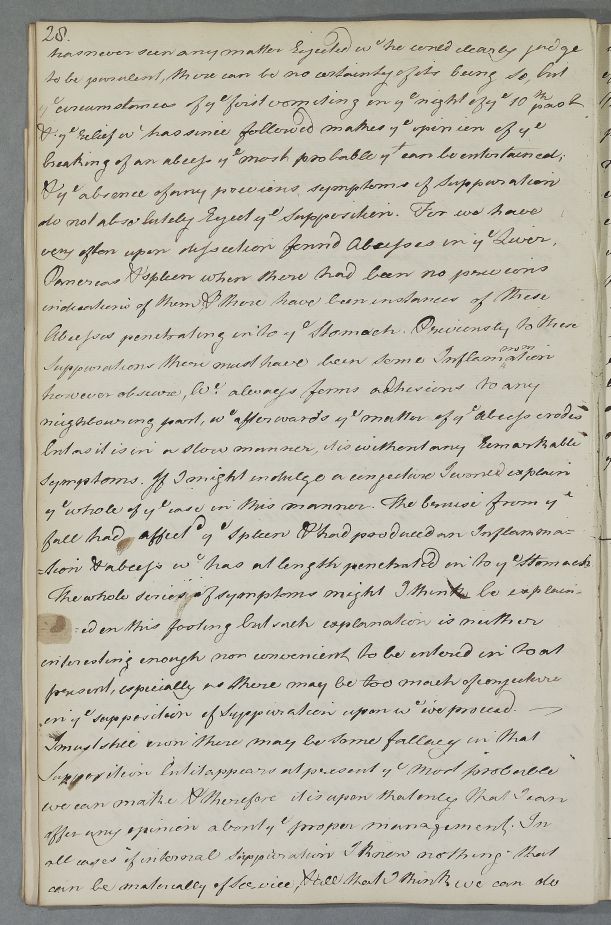 28.
has never seen any matter Ejected wc he could clearly judge
to be purulent, there can be no certainty of its being So, but
ye circumstances of ye first vomiting in ye night of ye 10th past
& ye relief wc has since followed makes ye opinion of ye
breaking of an abcess ye most probable yt can be entertained;
& ye absence of any previous symptoms of Suppuration
do not absolutely Eject ye Supposition. For we have
very often upon dissection found Abcesses in ye Liver,
Pancreas & Spleen when there had been no previous
indications of them & there have been instances of these
Abcesses penetrating into ye Stomach. Previously to these
Suppurations there must have been some Inflammation
however obscure, wc always forms adhesions to any
neighbouring part, wc afterwards ye matter of ye Abcess erodes
but as it is in a slow manner, it is without any Remarkable
Symptoms. If I might indulge a conjecture I would explain
ye whole of ye case in this manner. The bruise from ye
fall had affectd ye Spleen & had produced an Inflamma-
-tion & abcess wc has at length penetrated into ye Stomach
The whole series of symptoms might I think be explain-
-ed on this footing but such explanation is neither
interesting enough nor convenient to be entered into at
present, especially as there may be too much of conjecture
in ye supposition of Suppuration upon wc we proceed.
I must still own there may be some fallacy in that
Supposition but it appears at present ye most probable
we can make & therefore it is upon that only that I can
offer any opinion about ye proper management. In
all cases of internal Suppuration I know nothing that
can be materially of Service, & all that I think we can do